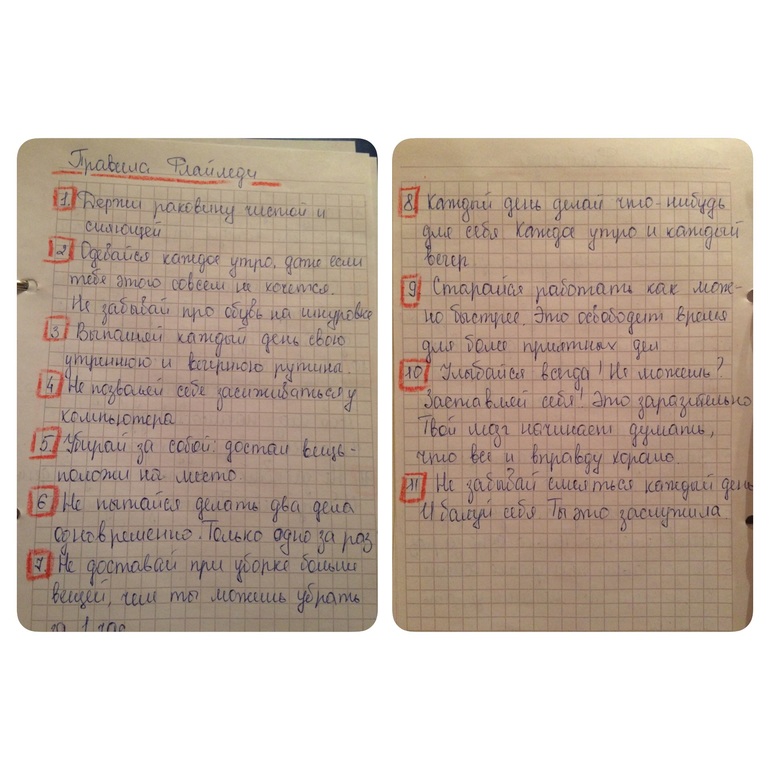 Правила Флайледи
1. Держи раковину чистой и
сияющей
2 Одевайся каждое утро, даже если
тебе этого совсем не хочется.
Не забывай про обувь на шнуровке
3 Выполняй каждый день свою
утреннюю и вечернюю рутина.
4 Не позволяй себе засиживаться у
компьютера
5 Убирай за собой: достал вещь-
положи на место.
6 Не пытайся делать два дела
одновременно. Только одно за раз
7 Не доставай при уборке больше
вещей, чем ты можешь убрать
за 1 час
8 Каждый день делай что-нибудь
для себя Каждое утро и каждый
вечер
9 Старайся работать как мож-
но быстрее. Это освободит время
для более приятных дел
10 Улыбайся всегда! Не можешь?
Заставляй себя! Это заразительно
Твой мозг начинает думать,
что все и вправду хорошо.
11 Не забывай смеяться каждый день
И балуй себя Ты это заслужила